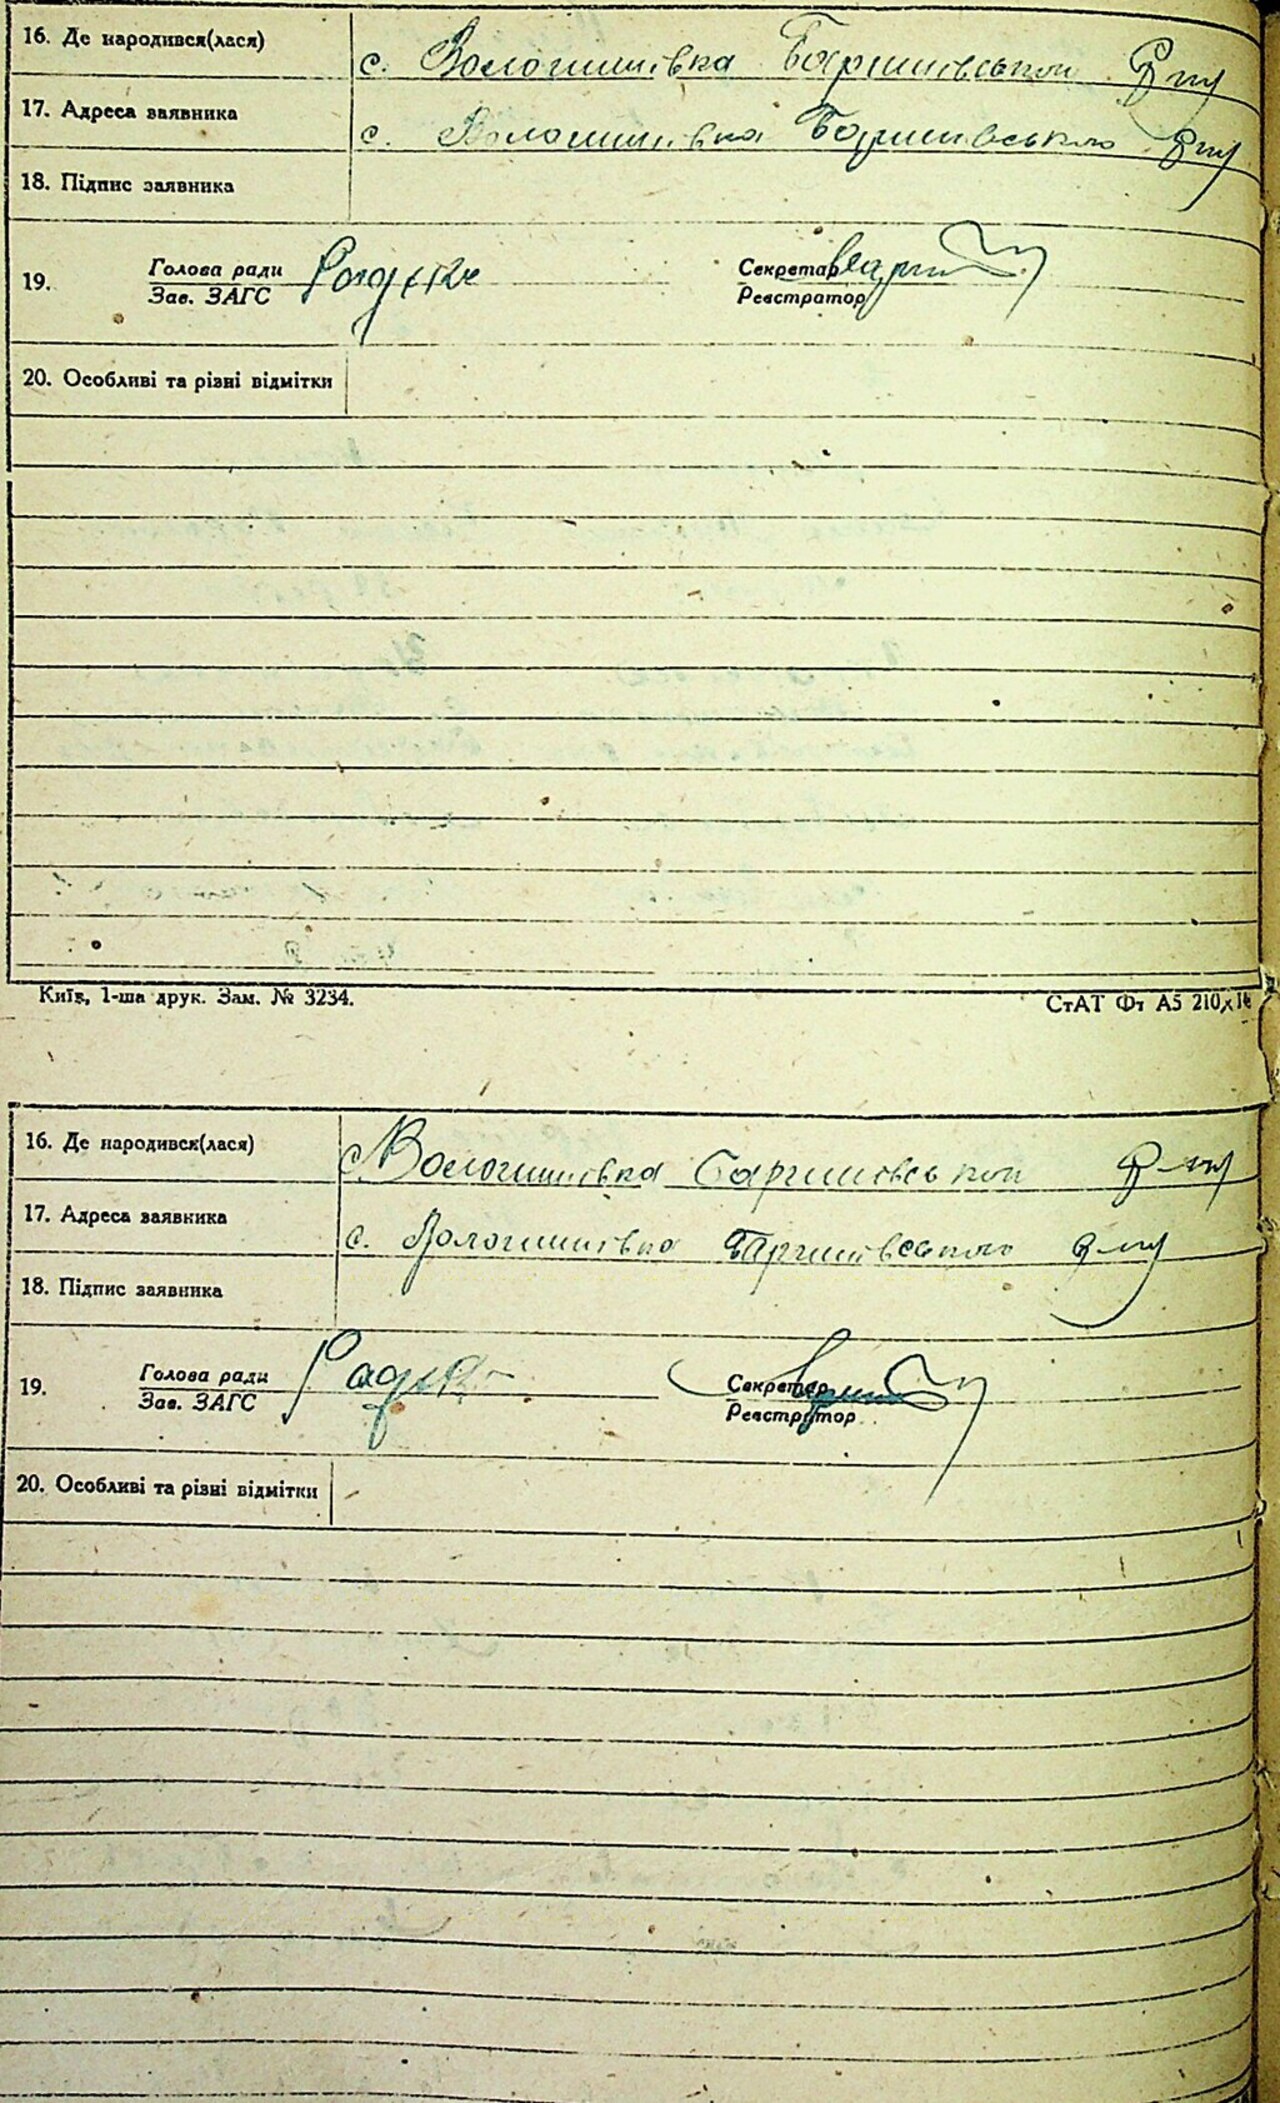 16. Де народився(лася) с. Волошинівка Баришівського р-ну
17. Адреса заявника с. Волошинівка Баришівського р-ну
18. Підпис заявника
19. Голова ради Секретар
Зав. ЗАГС Реєстратор
20. Особливі та різні відмітки
Київ, 1-ша друк. Зам. № 3234. СтАТ Фт А5 210х14
16. Де народився(лася) с. Волошинівка Баришівського р-ну
17. Адреса заявника с. Волошинівка Баришівського р-ну
18. Підпис заявника
19. Голова ради Секретар
Зав. ЗАГС Реєстратор
20. Особливі та різні відмітки